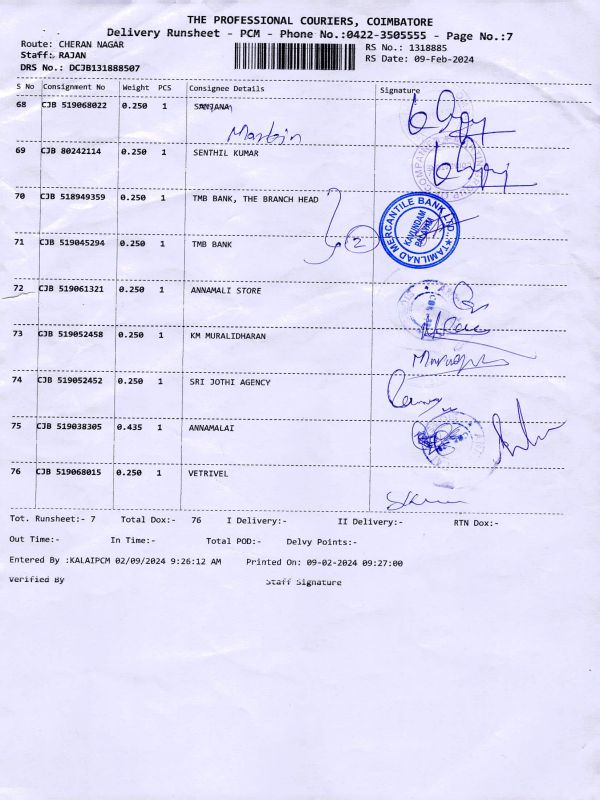 THE PROFESSIONAL COURIERS, COIMBATORE
Delivery Runsheet - PCM - Phone No.:0422-3505555 - Page No.:7
Route: CHERAN NAGAR
RS No.: 1318885
Staff: RAJAN
RS Date: 09-Feb-2024
DRS No.: DCJB131888507
S No Consignment No Weight PCS Consignee Details Signature
68 CJB 519068022 0.250 1 SANJANA
Martin
69 CJB 80242114 0.250 1 SENTHIL KUMAR
70 CJB 518949359 0.250 1 TMB BANK, THE BRANCH HEAD
TAMILNAD MERCANTILE BANK LTD.,
KAVUNDAM PALAYAM
71 CJB 519045294 0.250 1 TMB BANK
2
72 CJB 519061321 0.250 1 ANNAMALI STORE
73 CJB 519052458 0.250 1 KM MURALIDHARAN
74 CJB 519052452 0.250 1 SRI JOTHI AGENCY
75 CJB 519038305 0.435 1 ANNAMALAI
76 CJB 519068015 0.250 1 VETRIVEL
Tot. Runsheet:- 7 Total Dox:- 76 I Delivery:- II Delivery:- RTN Dox:-
Out Time:- In Time:- Total POD:- Delvy Points:-
Entered By :KALAIPCM 02/09/2024 9:26:12 AM Printed On: 09-02-2024 09:27:00
Verified By Staff Signature